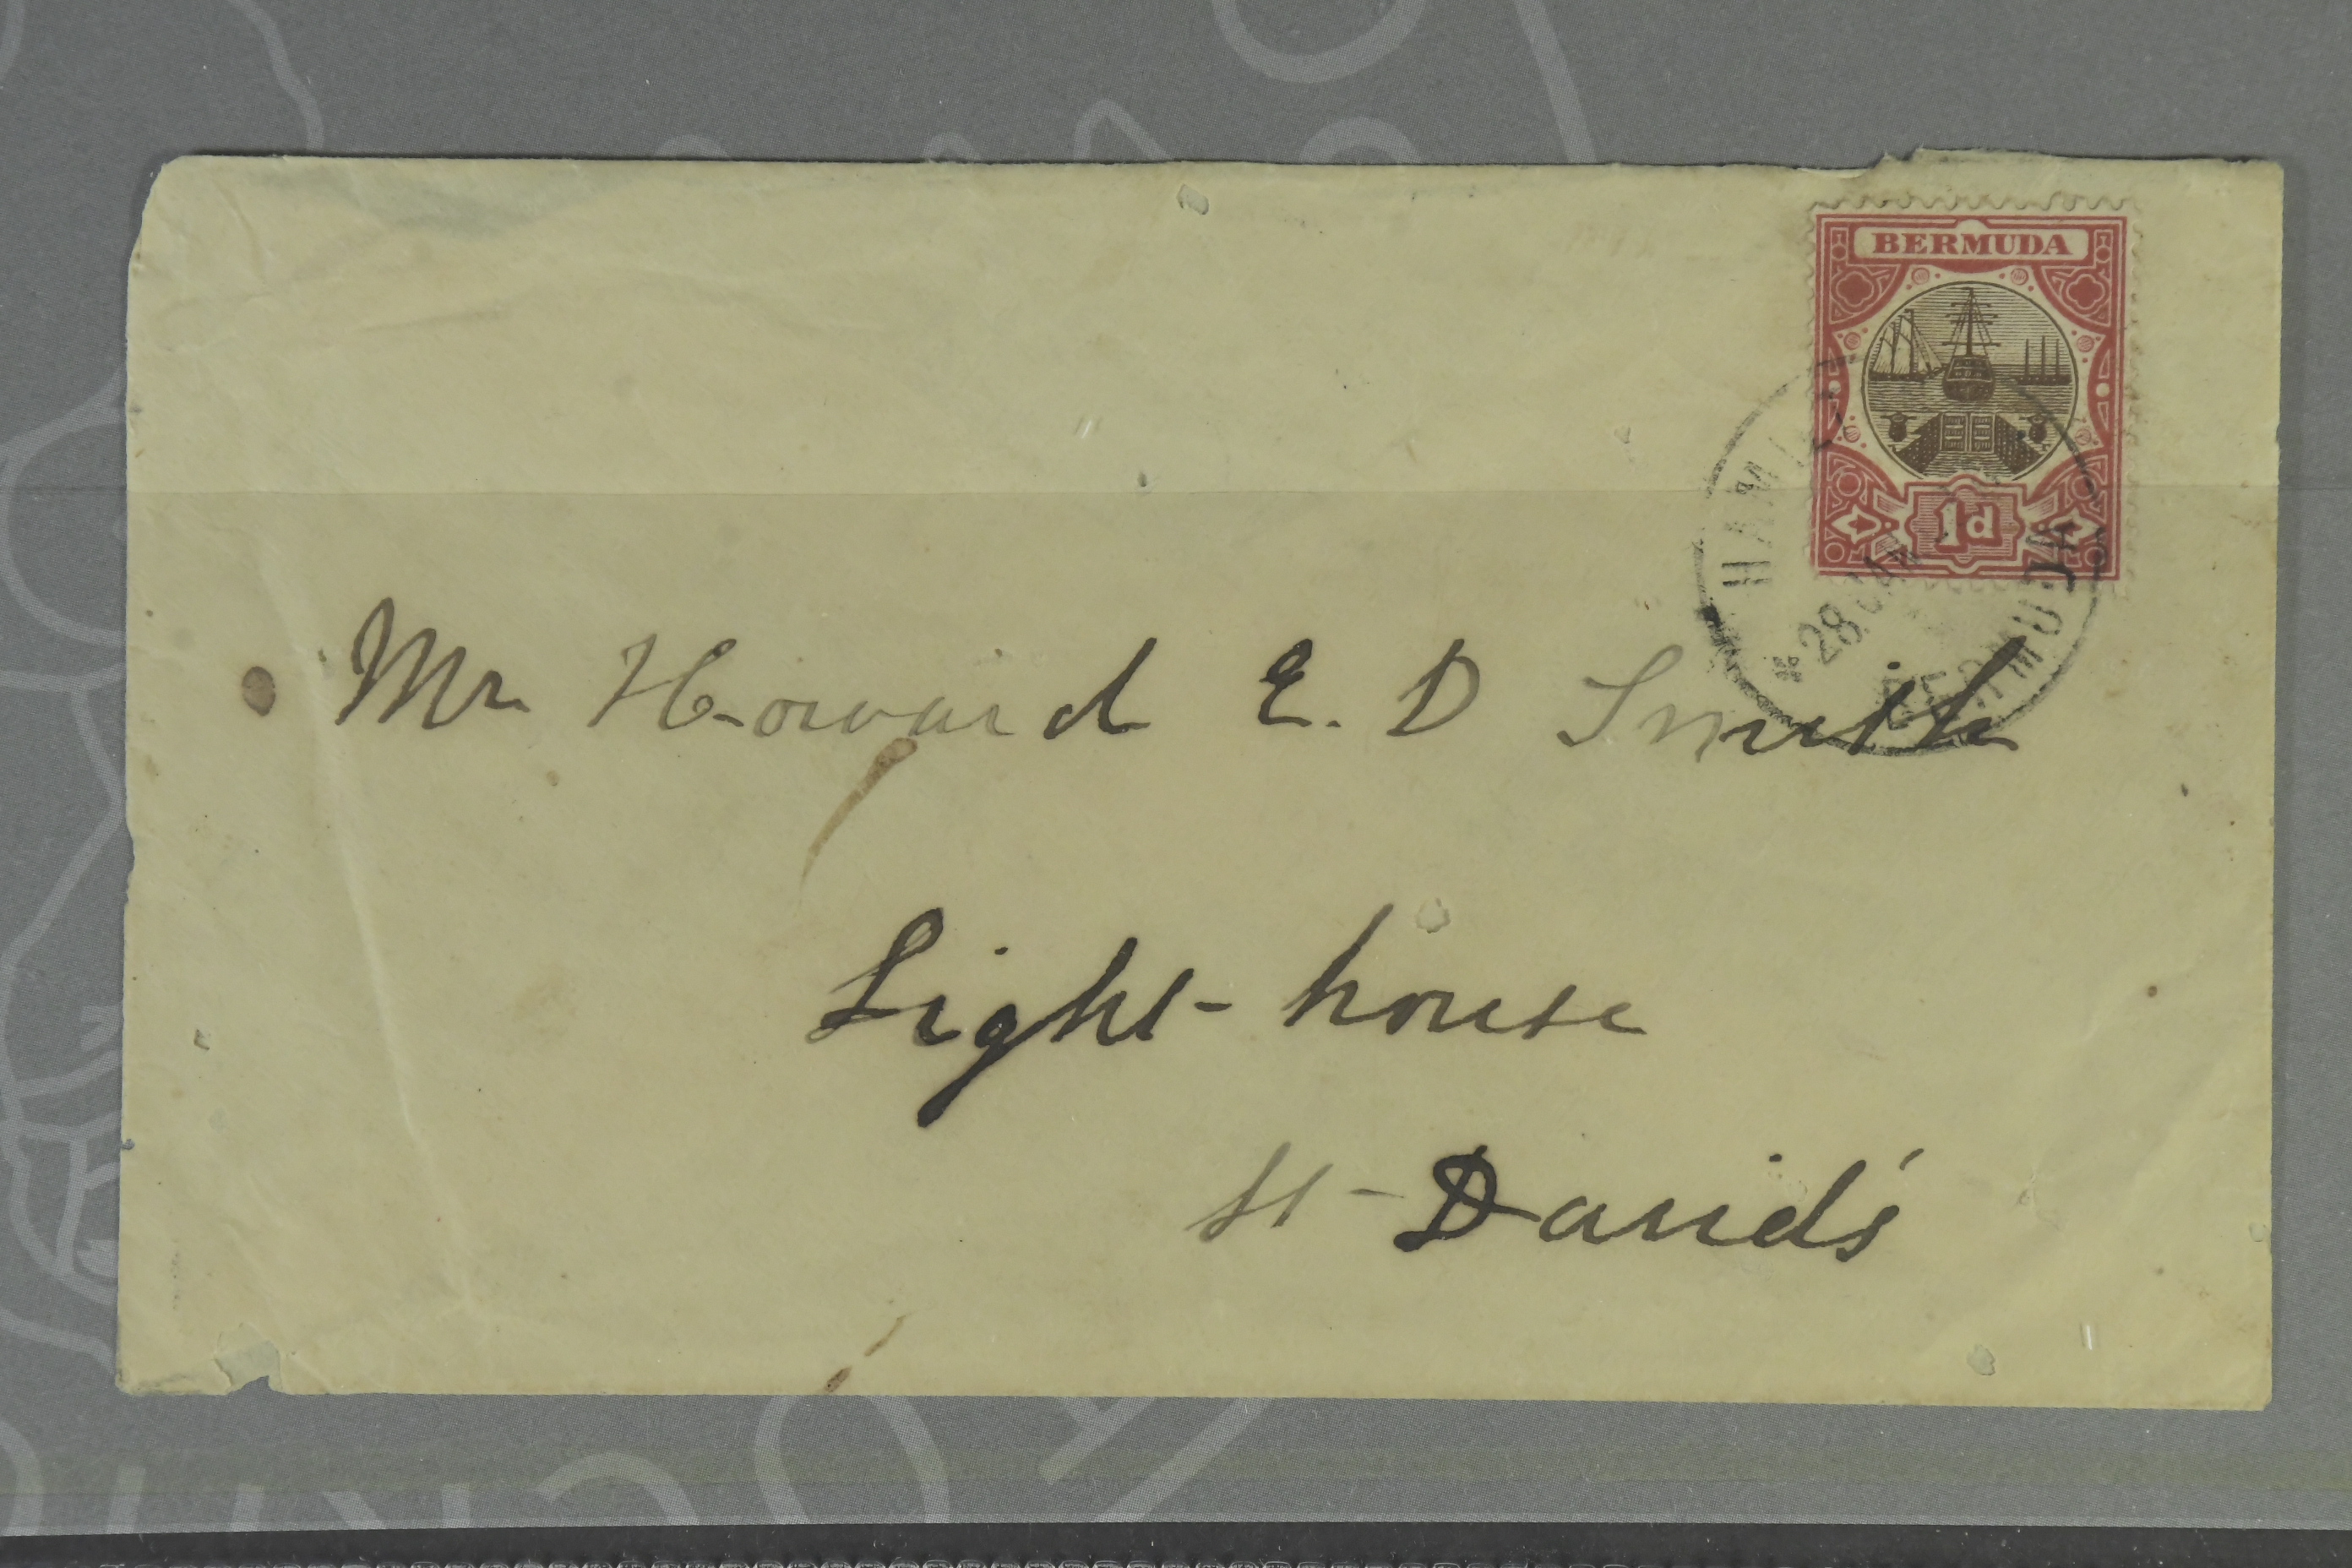 BERMUDA
1d
HAMILT
*28 JAN
BERMUDA
Mr Howard E. D Smith
Light-house
St-David's